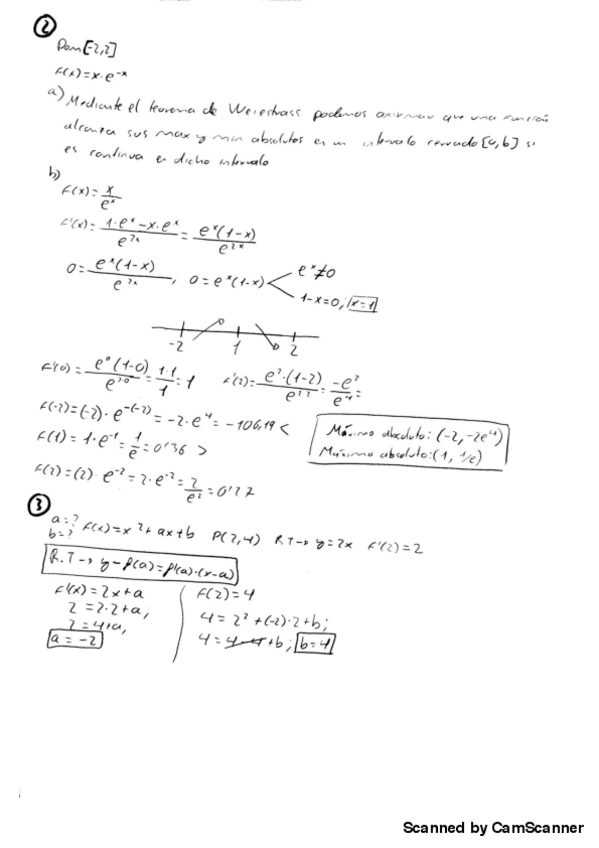 ②
Dom[-2,2]
f(x)=x·e^-x
a) Mediante el teorema de Weierstrass podemos afirmar que una función
alcanza sus max y min absolutos en un intervalo cerrado [a,b] si
es continua en dicho intervalo
b)
f(x)=x/e^x
f'(x)=(1·e^x-x·e^x)/e^2x=e^x(1-x)/e^2x
0=e^x(1-x)/e^2x, 0=e^x(1-x) e^x≠0
1-x=0; x=1
-2 1 2
f'(0)=e^0(1-0)/e^2·0=1·1/1=1 f'(2)=e^2·(1-2)/e^2·2=-e^2/e^4=
f(-2)=(-2)·e^-(-2)=-2·e^4=-106,19<
f(1)=1·e^-1=1/e=0'36>
f(2)=(2)·e^-2=2·e^-2=2/e^2=0'27
absoluto: (-2,-2e^4)
Máximo absoluto: (1, 1/e)
③
a=? f(x)=x^2+ax+b P(2,4) R.T→y=2x f'(2)=2
b=?
R.T→ y-f(a)=f'(a)·(x-a)
f'(x)=2x+a
2=2·2+a;
2=4+a;
a=-2
f(2)=4
4=2^2+(-2)·2+b;
4=4-4+b; b=4
Scanned by CamScanner